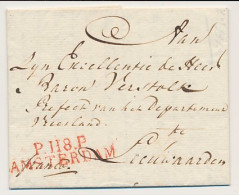 Aan
Zyn Excellentie de Heer
Baron Verstolk
Prefect van het Departement
Vriesland
te
Leeuwaarden
P.118.P.
AMSTERDAM